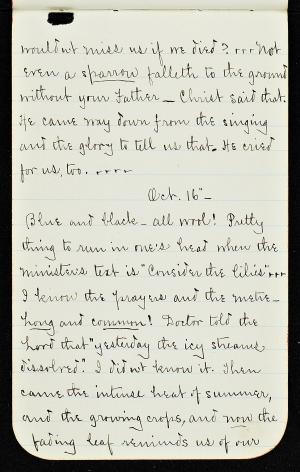 wouldnt miss us if we died? .... Not
even a sparrow falleth to the ground
without your Father – Christ said that.
He came way down from the singing
and the glory to tell us that. He cried
for us, too. ....
Oct. 16" –
Blue and black – all wool! Pretty
thing to run in one's head when the
minister's text is "Consider the lilies"...
I know the prayers and the metre –
Long and common! Doctor told the
Lord that "yesterday the icy streams
dissolved." I didn't know it. Then
came the intense heat of summer,
and the growing crops, and now the
fading leaf reminds us of our